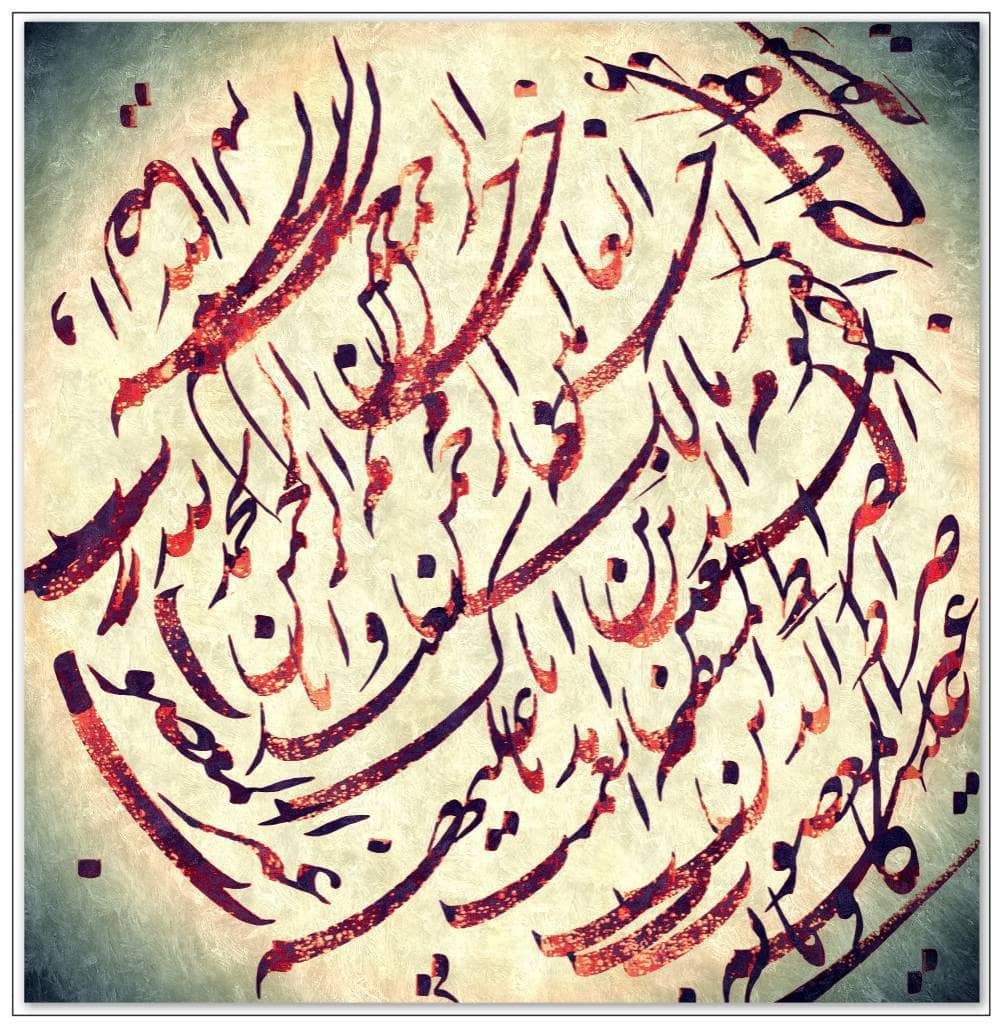 بسم الله الرحمن الرحيم
الحمد لله رب العالمين
الرحمن الرحيم
مالك يوم الدين
اياك نعبد و اياك نستعين
اهدنا الصراط المستقيم
صراط الذين انعمت عليهم
غير المغضوب عليهم و لا الضالين